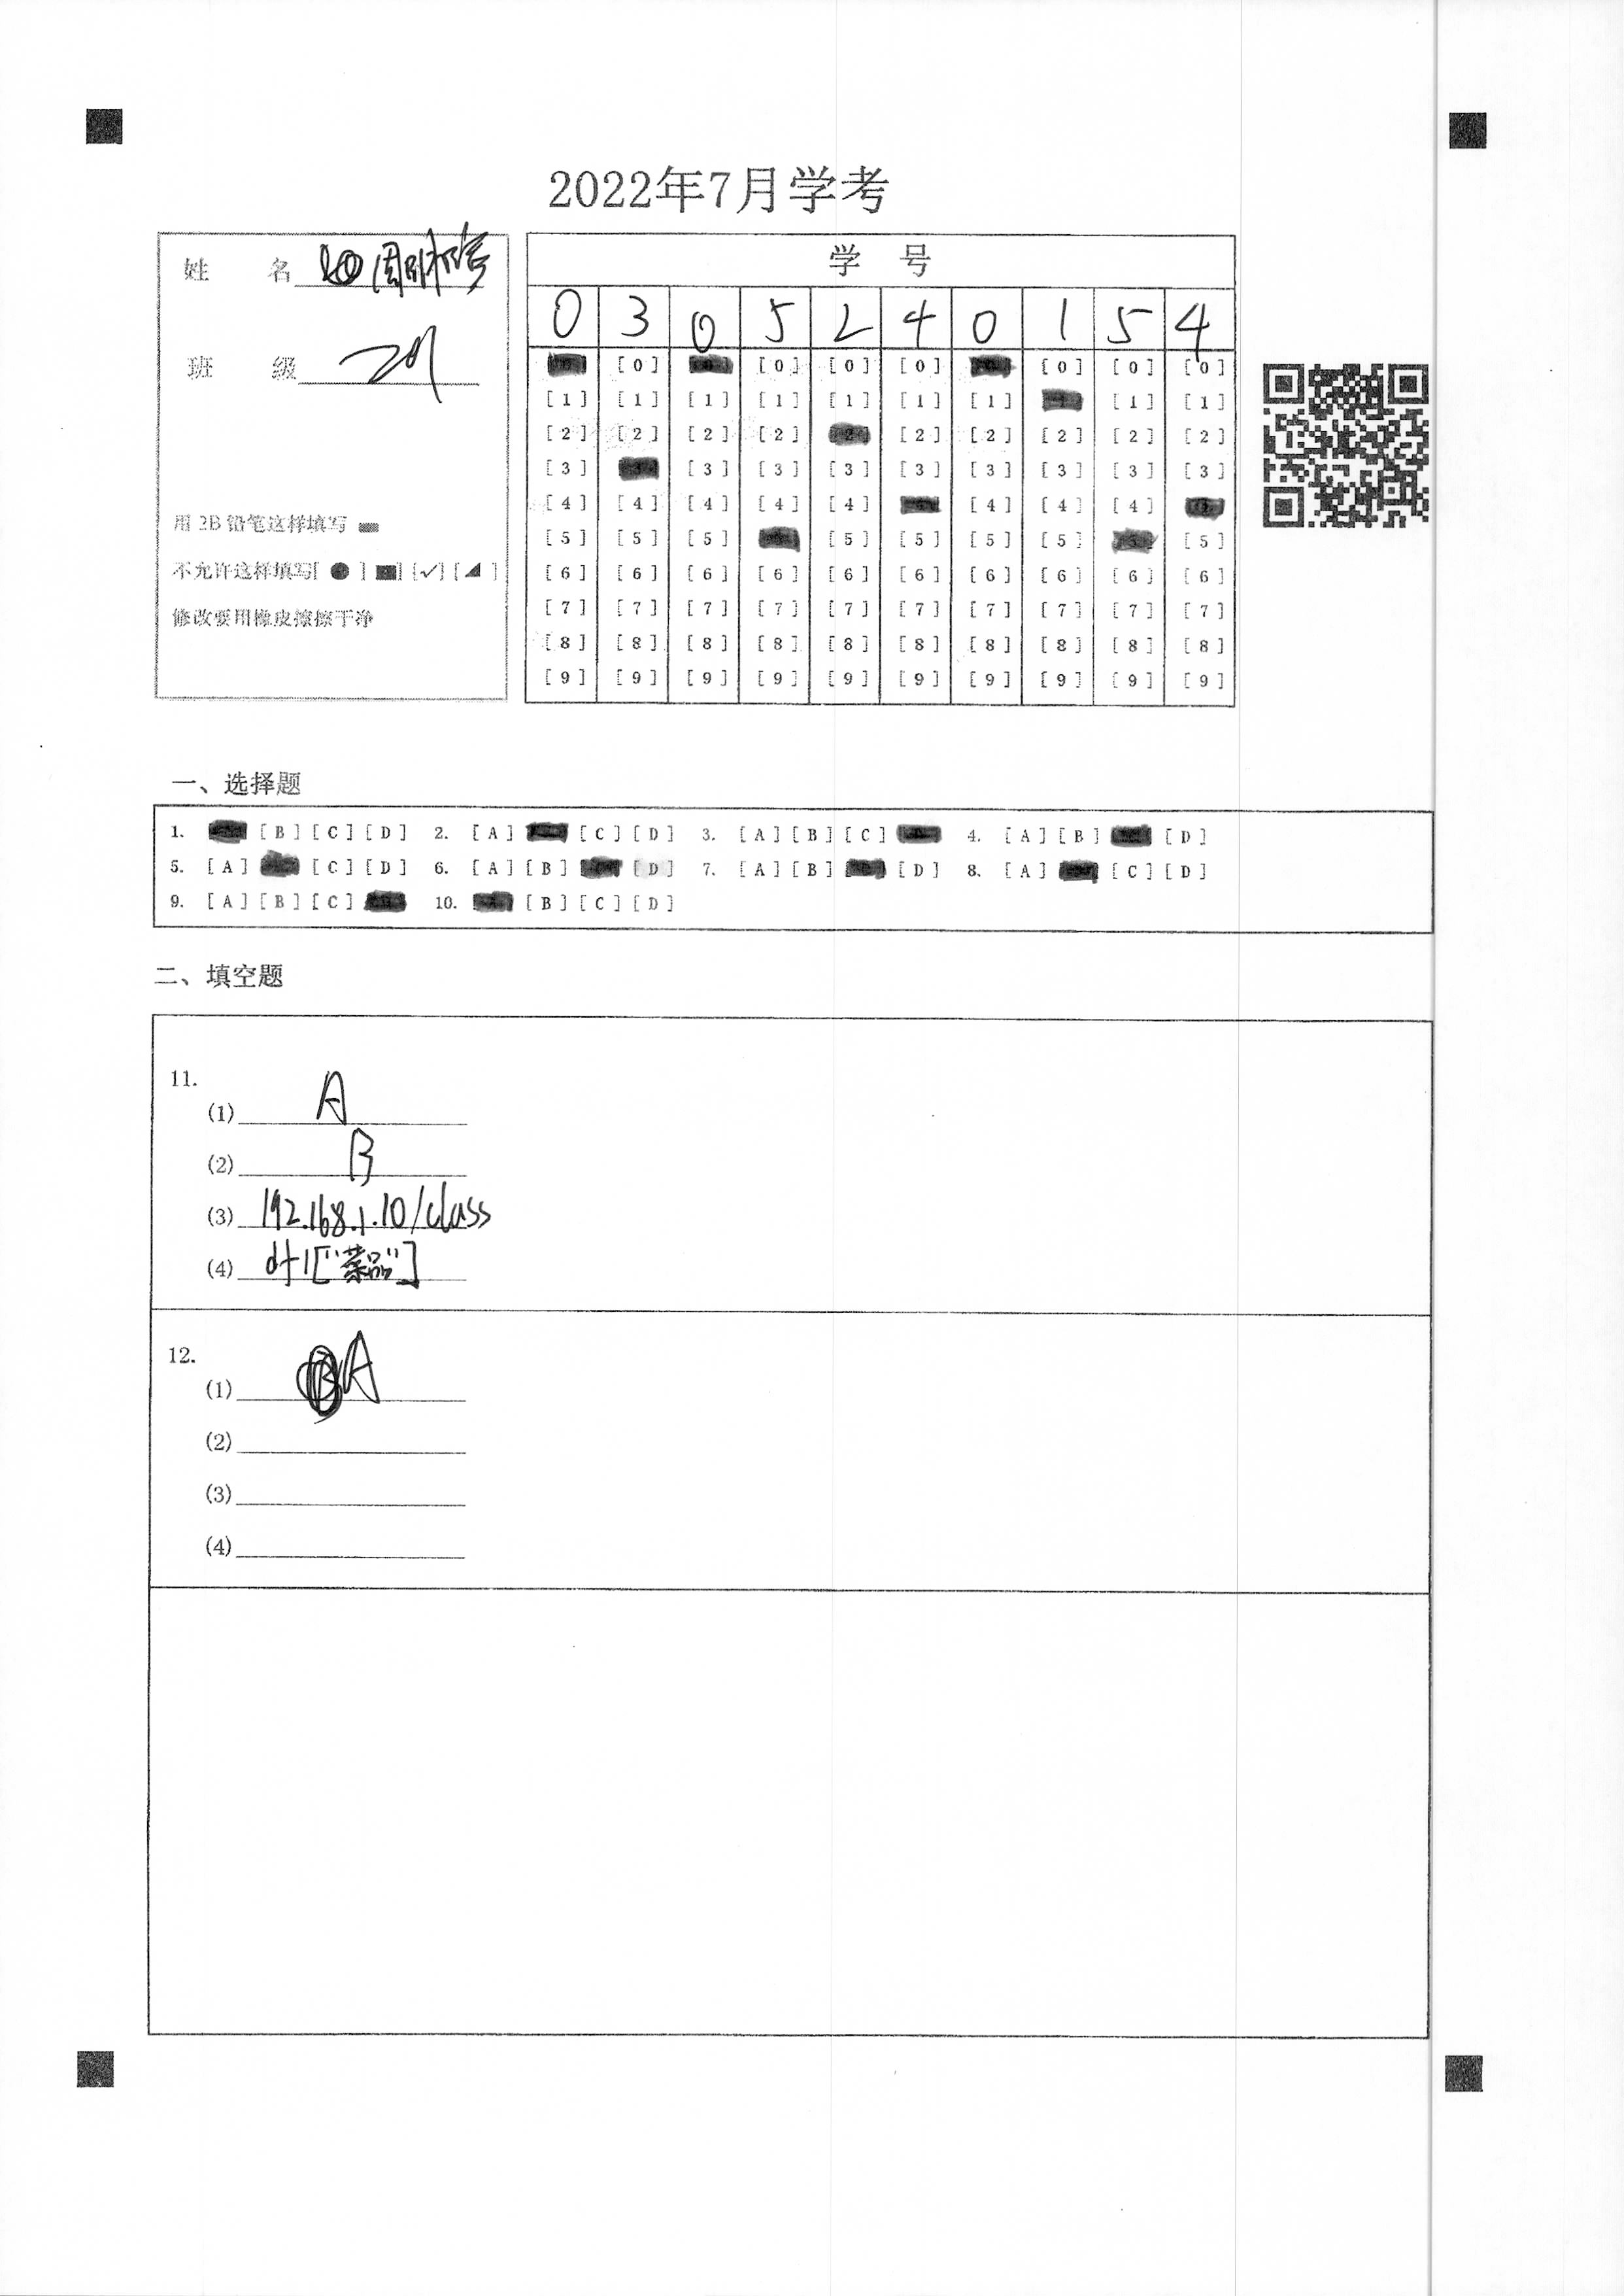 2022年7月学考
姓 名 周
班 级
用 2B 铅笔这样填写
不允许这样填写[ ● ] [■] [✓] [◢ ]
修改要用橡皮擦擦干净
学 号
0 3 0 5 2 4 0 1 5 4
[0] [0] [0] [0] [0] [0] [0]
[1] [1] [1] [1] [1] [1] [1] [1] [1]
[2] [2] [2] [2] [2] [2] [2] [2] [2]
[3] [3] [3] [3] [3] [3] [3] [3] [3]
[4] [4] [4] [4] [4] [4] [4] [4]
[5] [5] [5] [5] [5] [5] [5] [5]
[6] [6] [6] [6] [6] [6] [6] [6] [6] [6]
[7] [7] [7] [7] [7] [7] [7] [7] [7] [7]
[8] [8] [8] [8] [8] [8] [8] [8] [8] [8]
[9] [9] [9] [9] [9] [9] [9] [9] [9] [9]
一、选择题
1. [B] [C] [D] 2. [A] [C] [D] 3. [A] [B] [C] 4. [A] [B] [D]
5. [A] [C] [D] 6. [A] [B] [D] 7. [A] [B] [D] 8. [A] [C] [D]
9. [A] [B] [C] 10. [B] [C] [D]
二、填空题
11.
(1) A
(2) B
(3) 192.168.1.10/class
(4) df1["菜品"]
12.
(1) A
(2)
(3)
(4)